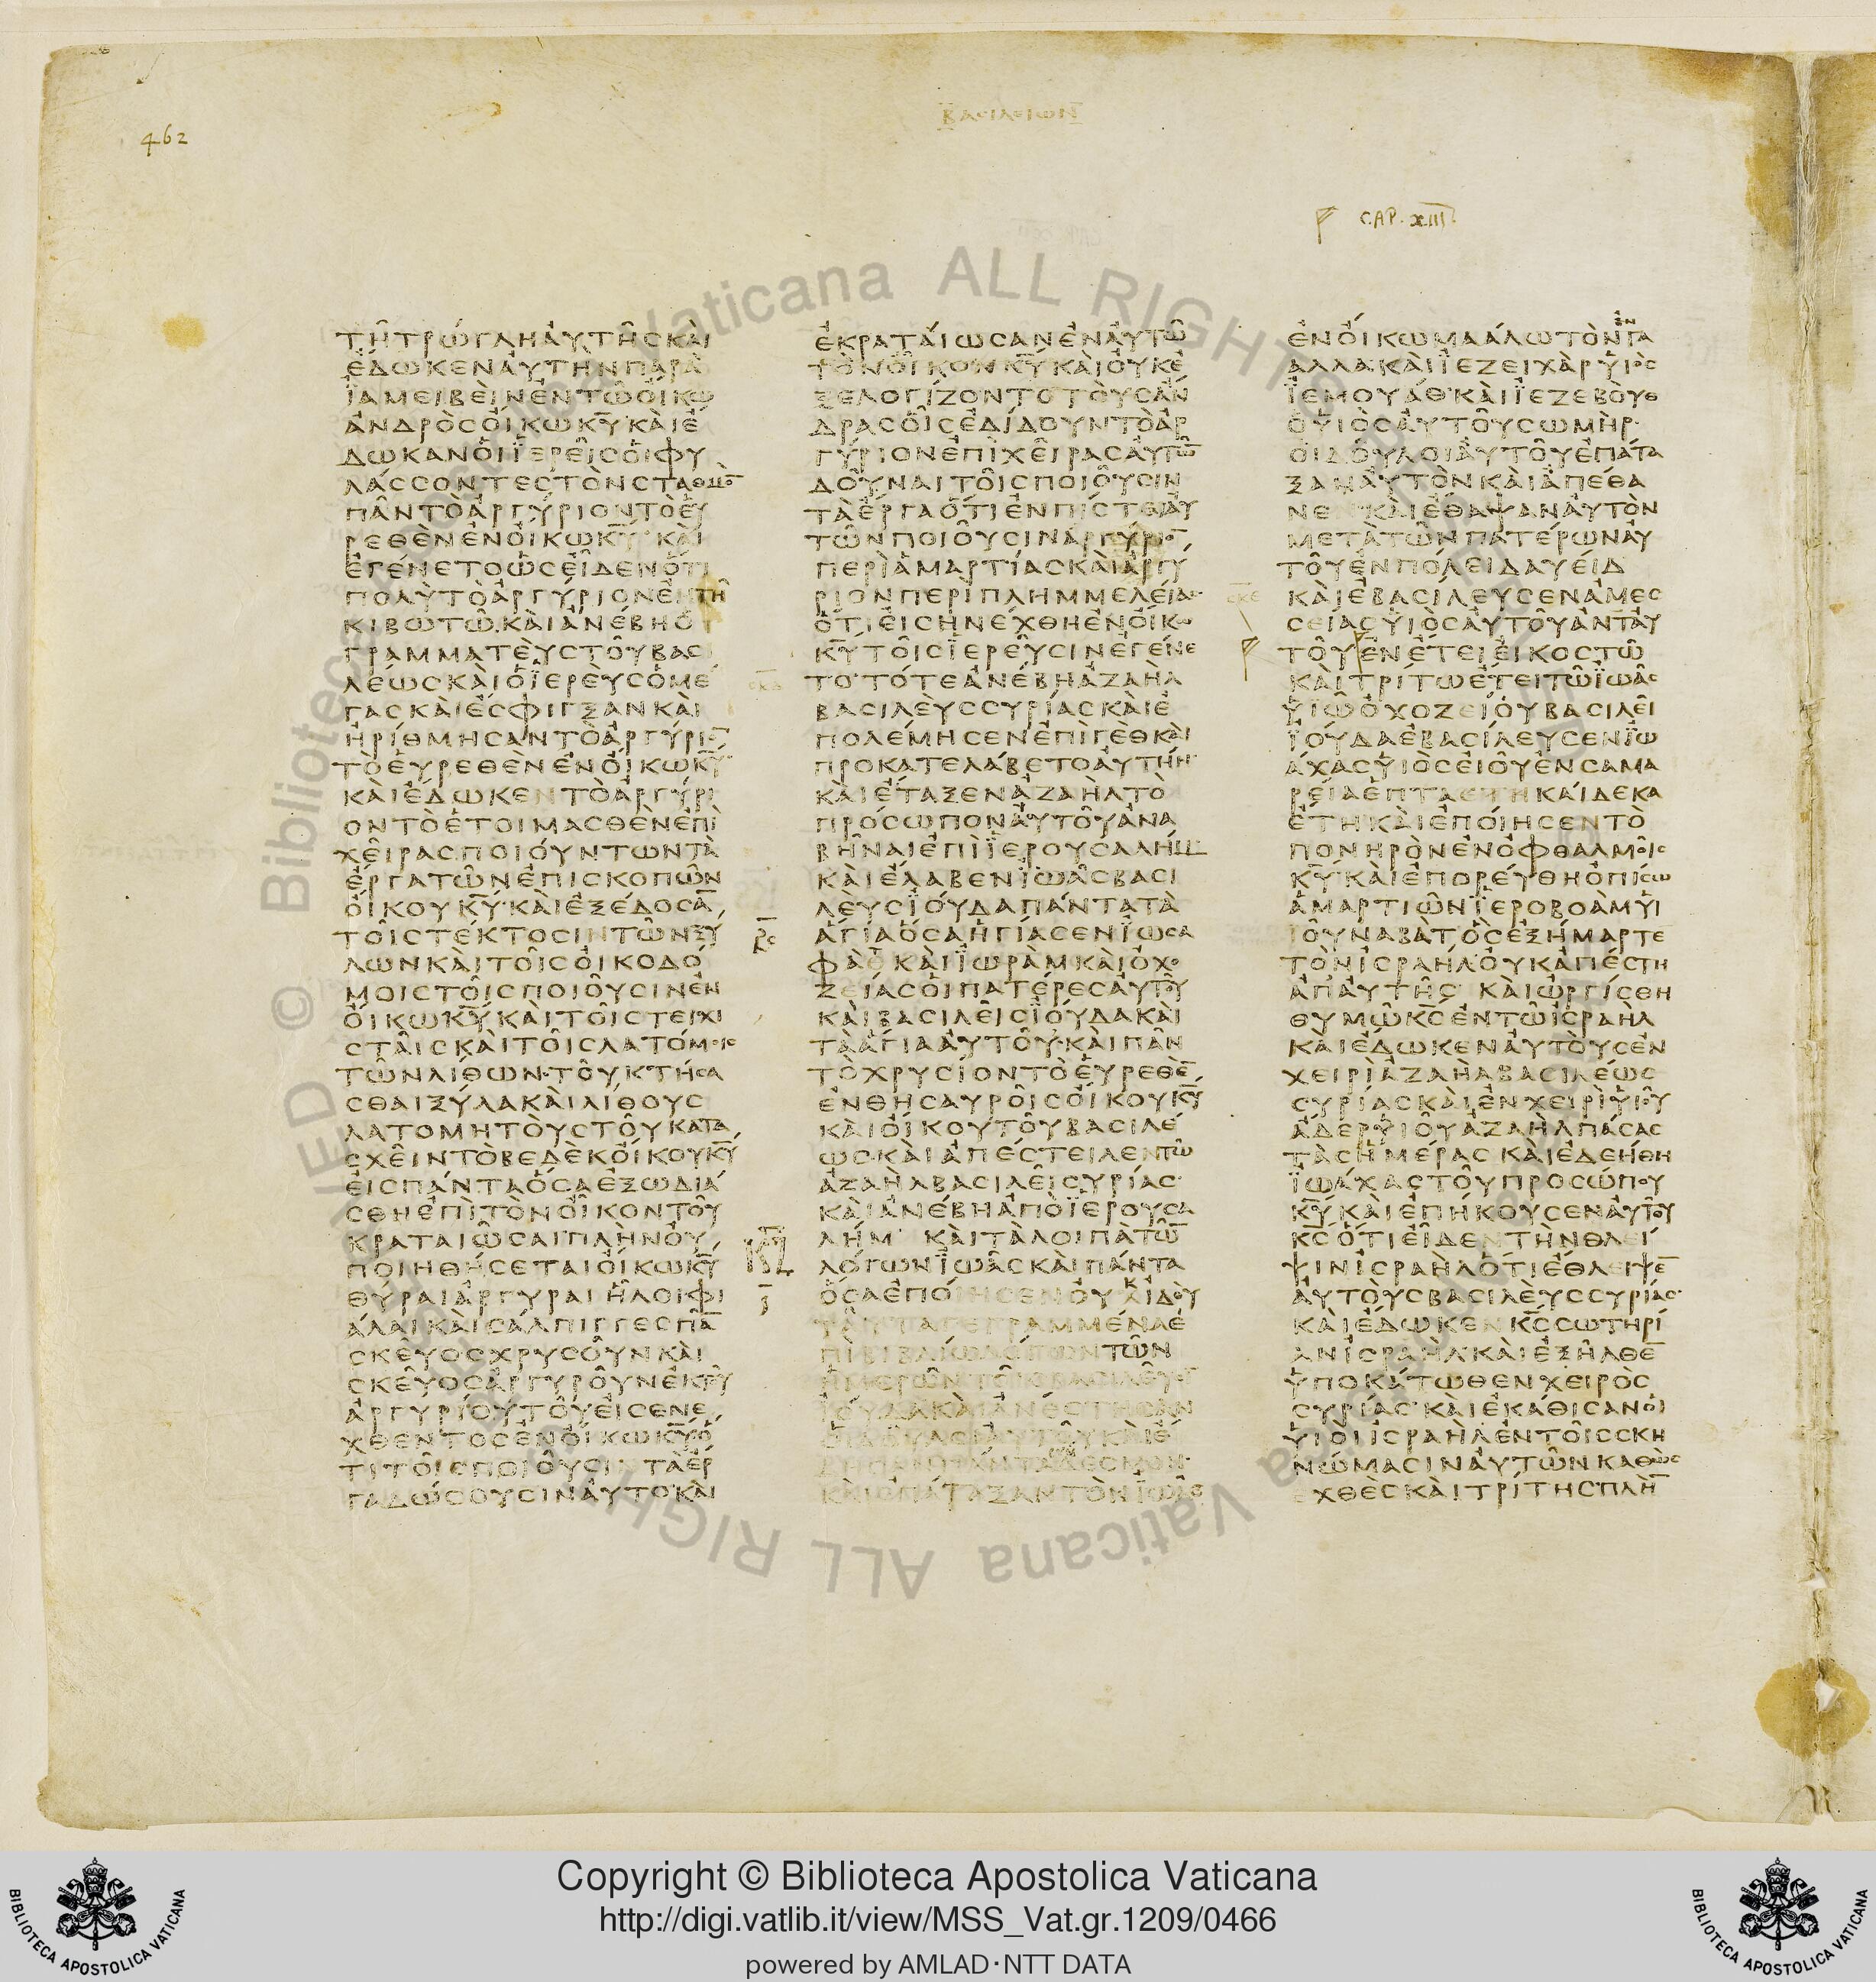 462
ΒΑΣΙΛΕΙΩΝ
CAP. XIII
ΤΗ ΤΡΩΓΛΗ ΑΥΤΗΣ ΚΑΙ
ΕΔΩΚΕΝ ΑΥΤΗΝ ΠΑΡΑ
ΪΑΜΕΙΒΕΙΝ ΕΝ ΤΩ ΟΙΚΩ
ΑΝΔΡΟΣ ΟΙΚΩ ΚΥ ΚΑΙ Ε
ΔΩΚΑΝ ΟΙ ΪΕΡΕΙΣ ΟΙ ΦΥ
ΛΑΣΣΟΝΤΕΣ ΤΟΝ ΣΤΑΘΜΟ̅
ΠΑΝ ΤΟ ΑΡΓΥΡΙΟΝ ΤΟ ΕΥ
ΡΕΘΕΝ ΕΝ ΟΙΚΩ ΚΥ ΚΑΙ
ΕΓΕΝΕΤΟ ΩΣ ΕΙΔΕΝ ΟΤΙ
ΠΟΛΥ ΤΟ ΑΡΓΥΡΙΟΝ ΕΝ ΤΗ
ΚΙΒΩΤΩ ΚΑΙ ΑΝΕΒΗ Ο
ΓΡΑΜΜΑΤΕΥΣ ΤΟΥ ΒΑΣΙ
ΛΕΩΣ ΚΑΙ Ο ΪΕΡΕΥΣ Ο ΜΕ
ΓΑΣ ΚΑΙ ΕΣΦΙΓΞΑΝ ΚΑΙ
ΗΡΙΘΜΗΣΑΝ ΤΟ ΑΡΓΥΡΙΟ̅
ΤΟ ΕΥΡΕΘΕΝ ΕΝ ΟΙΚΩ ΚΥ
ΚΑΙ ΕΔΩΚΕΝ ΤΟ ΑΡΓΥΡΙ
ΟΝ ΤΟ ΕΤΟΙΜΑΣΘΕΝ ΕΠΙ
ΧΕΙΡΑΣ ΠΟΙΟΥΝΤΩΝ ΤΑ
ΕΡΓΑ ΤΩΝ ΕΠΙΣΚΟΠΩΝ
ΟΙΚΟΥ ΚΥ ΚΑΙ ΕΞΕΔΟΣΑ̅
ΤΟΙΣ ΤΕΚΤΟΣΙΝ ΤΩΝ ΞΥ
ΛΩΝ ΚΑΙ ΤΟΙΣ ΟΙΚΟΔΟ
ΜΟΙΣ ΤΟΙΣ ΠΟΙΟΥΣΙΝ ΕΝ
ΟΙΚΩ ΚΥ ΚΑΙ ΤΟΙΣ ΤΕΙΧΙ
ΣΤΑΙΣ ΚΑΙ ΤΟΙΣ ΛΑΤΟΜΟΙΣ
ΤΩΝ ΛΙΘΩΝ ΤΟΥ ΚΤΗΣΑ
ΣΘΑΙ ΞΥΛΑ ΚΑΙ ΛΙΘΟΥΣ
ΛΑΤΟΜΗΤΟΥΣ ΤΟΥ ΚΑΤΑ
ΣΧΕΙΝ ΤΟ ΒΕΔΕΚ ΟΙΚΟΥ ΚΥ
ΕΙΣ ΠΑΝΤΑ ΟΣΑ ΕΞΩΔΙΑ
ΣΘΗ ΕΠΙ ΤΟΝ ΟΙΚΟΝ ΤΟΥ
ΚΡΑΤΑΙΩΣΑΙ ΠΛΗΝ ΟΥ
ΠΟΙΗΘΗΣΕΤΑΙ ΟΙΚΩ ΚΥ
ΘΥΡΑΙ ΑΡΓΥΡΑΙ ΗΛΟΙ ΦΙ
ΑΛΑΙ ΚΑΙ ΣΑΛΠΙΓΓΕΣ ΠΑ̅
ΣΚΕΥΟΣ ΧΡΥΣΟΥΝ ΚΑΙ
ΣΚΕΥΟΣ ΑΡΓΥΡΟΥΝ ΕΚ ΤΟΥ
ΑΡΓΥΡΙΟΥ ΤΟΥ ΕΙΣΕΝΕ
ΧΘΕΝΤΟΣ ΕΝ ΟΙΚΩ ΚΥ Ο
ΤΙ ΤΟΙΣ ΠΟΙΟΥΣΙΝ ΤΑ ΕΡ
ΓΑ ΔΩΣΟΥΣΙΝ ΑΥΤΟ ΚΑΙ
ΕΚΡΑΤΑΙΩΣΑΝ ΕΝ ΑΥΤΩ
ΤΟΝ ΟΙΚΟΝ ΚΥ ΚΑΙ ΟΥΚ Ε
ΞΕΛΟΓΙΖΟΝΤΟ ΤΟΥΣ ΑΝ
ΔΡΑΣ ΟΙΣ ΕΔΙΔΟΥΝ ΤΟ ΑΡ
ΓΥΡΙΟΝ ΕΠΙ ΧΕΙΡΑΣ ΑΥΤΩ̅
ΔΟΥΝΑΙ ΤΟΙΣ ΠΟΙΟΥΣΙΝ
ΤΑ ΕΡΓΑ ΟΤΙ ΕΝ ΠΙΣΤΕΙ ΑΥ
ΤΩΝ ΠΟΙΟΥΣΙΝ ΑΡΓΥΡΙΟ̅
ΠΕΡΙ ΑΜΑΡΤΙΑΣ ΚΑΙ ΑΡΓΥ
ΡΙΟΝ ΠΕΡΙ ΠΛΗΜΜΕΛΕΙΑΣ
ΟΤΙ ΕΙΣΗΝΕΧΘΗ ΕΝ ΟΙΚΩ
ΚΥ ΤΟΙΣ ΪΕΡΕΥΣΙΝ ΕΓΕΝΕ
ΤΟ ΤΟΤΕ ΑΝΕΒΗ ΑΖΑΗΛ
ΒΑΣΙΛΕΥΣ ΣΥΡΙΑΣ ΚΑΙ Ε
ΠΟΛΕΜΗΣΕΝ ΕΠΙ ΓΕΘ ΚΑΙ
ΠΡΟΚΑΤΕΛΑΒΕΤΟ ΑΥΤΗΝ
ΚΑΙ ΕΤΑΞΕΝ ΑΖΑΗΛ ΤΟ
ΠΡΟΣΩΠΟΝ ΑΥΤΟΥ ΑΝΑ
ΒΗΝΑΙ ΕΠΙ ΪΕΡΟΥΣΑΛΗΜ
ΚΑΙ ΕΛΑΒΕΝ ΪΩΑΣ ΒΑΣΙ
ΛΕΥΣ ΪΟΥΔΑ ΠΑΝΤΑ ΤΑ
ΑΓΙΑ ΟΣΑ ΗΓΙΑΣΕΝ ΪΩΣΑ
ΦΑΘ ΚΑΙ ΪΩΡΑΜ ΚΑΙ ΟΧΟ
ΖΕΙΑΣ ΟΙ ΠΑΤΕΡΕΣ ΑΥΤΟΥ
ΚΑΙ ΒΑΣΙΛΕΙΣ ΪΟΥΔΑ ΚΑΙ
ΤΑ ΑΓΙΑ ΑΥΤΟΥ ΚΑΙ ΠΑΝ
ΤΟ ΧΡΥΣΙΟΝ ΤΟ ΕΥΡΕΘΕ̅
ΕΝ ΘΗΣΑΥΡΟΙΣ ΟΙΚΟΥ ΚΥ
ΚΑΙ ΟΙΚΟΥ ΤΟΥ ΒΑΣΙΛΕ
ΩΣ ΚΑΙ ΑΠΕΣΤΕΙΛΕΝ ΤΩ
ΑΖΑΗΛ ΒΑΣΙΛΕΙ ΣΥΡΙΑΣ
ΚΑΙ ΑΝΕΒΗ ΑΠΟ ΪΕΡΟΥΣΑ
ΛΗΜ ΚΑΙ ΤΑ ΛΟΙΠΑ ΤΩ̅
ΛΟΓΩΝ ΪΩΑΣ ΚΑΙ ΠΑΝΤΑ
ΟΣΑ ΕΠΟΙΗΣΕΝ ΟΥΚ ΙΔΟΥ
ΤΑΥΤΑ ΓΕΓΡΑΜΜΕΝΑ Ε
ΠΙ ΒΙΒΛΙΩ ΛΟΓΩΝ ΤΩΝ
ΗΜΕΡΩΝ ΤΟΙΣ ΒΑΣΙΛΕΥΣΙ̅
ΪΟΥΔΑ ΚΑΙ ΑΝΕΣΤΗΣΑΝ
ΟΙ ΔΟΥΛΟΙ ΑΥΤΟΥ ΚΑΙ Ε
ΚΑΙ ΕΠΑΤΑΞΑΝ ΤΟΝ ΪΩΑΣ
ΕΝ ΟΙΚΩ ΜΑΑΛΩ ΤΟΝ ΕΝ ΓΑ
ΑΛΛΑ ΚΑΙ ΪΕΖΕΙΧΑΡ ΥΙΟΣ
ΪΕΜΟΥΑΘ ΚΑΙ ΪΕΖΕΒΟΥΘ
Ο ΥΙΟΣ ΑΥΤΟΥ ΣΩΜΗΡ
ΟΙ ΔΟΥΛΟΙ ΑΥΤΟΥ ΕΠΑΤΑ
ΞΑΝ ΑΥΤΟΝ ΚΑΙ ΑΠΕΘΑ
ΝΕ ΚΑΙ ΕΘΑΨΑΝ ΑΥΤΟΝ
ΜΕΤΑ ΤΩΝ ΠΑΤΕΡΩΝ ΑΥ
ΤΟΥ ΕΝ ΠΟΛΕΙ ΔΑΥΕΙΔ
ΚΑΙ ΕΒΑΣΙΛΕΥΣΕΝ ΑΜΕΣ
ΣΕΙΑΣ ΥΙΟΣ ΑΥΤΟΥ ΑΝΤ ΑΥ
ΤΟΥ ΕΝ ΕΤΕΙ ΕΙΚΟΣΤΩ
ΚΑΙ ΤΡΙΤΩ ΕΤΕΙ ΤΩ ΪΩΑΣ
ΥΙΩ ΟΧΟΖΕΙΟΥ ΒΑΣΙΛΕΙ
ΪΟΥΔΑ ΕΒΑΣΙΛΕΥΣΕΝ ΪΩ
ΑΧΑΣ ΥΙΟΣ ΕΙΟΥ ΕΝ ΣΑΜΑ
ΡΕΙΑ ΕΠΤΑ ΕΤΗ ΚΑΙ ΔΕΚΑ
ΕΤΗ ΚΑΙ ΕΠΟΙΗΣΕΝ ΤΟ
ΠΟΝΗΡΟΝ ΕΝ ΟΦΘΑΛΜΟΙΣ
ΚΥ ΚΑΙ ΕΠΟΡΕΥΘΗ ΟΠΙΣΩ
ΑΜΑΡΤΙΩΝ ΪΕΡΟΒΟΑΜ ΥΙ
ΟΥ ΝΑΒΑΤ ΟΣ ΕΞΗΜΑΡΤΕ
ΤΟΝ ΙΣΡΑΗΛ ΟΥΚ ΑΠΕΣΤΗ
ΑΠ ΑΥΤΗΣ ΚΑΙ ΩΡΓΙΣΘΗ
ΘΥΜΩ ΚΣ ΕΝ ΤΩ ΙΣΡΑΗΛ
ΚΑΙ ΕΔΩΚΕΝ ΑΥΤΟΥΣ ΕΝ
ΧΕΙΡΙ ΑΖΑΗΛ ΒΑΣΙΛΕΩΣ
ΣΥΡΙΑΣ ΚΑΙ ΕΝ ΧΕΙΡΙ ΥΙΟΥ
ΑΔΕΡ ΥΙΟΥ ΑΖΑΗΛ ΠΑΣΑΣ
ΤΑΣ ΗΜΕΡΑΣ ΚΑΙ ΕΔΕΗΘΗ
ΪΩΑΧΑΣ ΤΟΥ ΠΡΟΣΩΠΟΥ
ΚΥ ΚΑΙ ΕΠΗΚΟΥΣΕΝ ΑΥΤΟΥ
ΚΣ ΟΤΙ ΕΙΔΕΝ ΤΗΝ ΘΛΕΙ
ΨΙΝ ΙΣΡΑΗΛ ΟΤΙ ΕΘΛΕΙΨΕ̅
ΑΥΤΟΥΣ ΒΑΣΙΛΕΥΣ ΣΥΡΙΑΣ
ΚΑΙ ΕΔΩΚΕΝ ΚΣ ΣΩΤΗΡΙ
ΑΝ ΙΣΡΑΗΛ ΚΑΙ ΕΞΗΛΘΕ̅
ΥΠΟΚΑΤΩΘΕΝ ΧΕΙΡΟΣ
ΣΥΡΙΑΣ ΚΑΙ ΕΚΑΘΙΣΑΝ ΟΙ
ΥΙΟΙ ΙΣΡΑΗΛ ΕΝ ΤΟΙΣ ΣΚΗ
ΝΩΜΑΣΙΝ ΑΥΤΩΝ ΚΑΘΩΣ
ΕΧΘΕΣ ΚΑΙ ΤΡΙΤΗΣ ΠΛΗ̅
© Biblioteca Apostolica Vaticana ALL RIGHTS RESERVED
Copyright © Biblioteca Apostolica Vaticana
http://digi.vatlib.it/view/MSS_Vat.gr.1209/0466
powered by AMLAD·NTT DATA
BIBLIOTECA APOSTOLICA VATICANA
BIBLIOTECA APOSTOLICA VATICANA